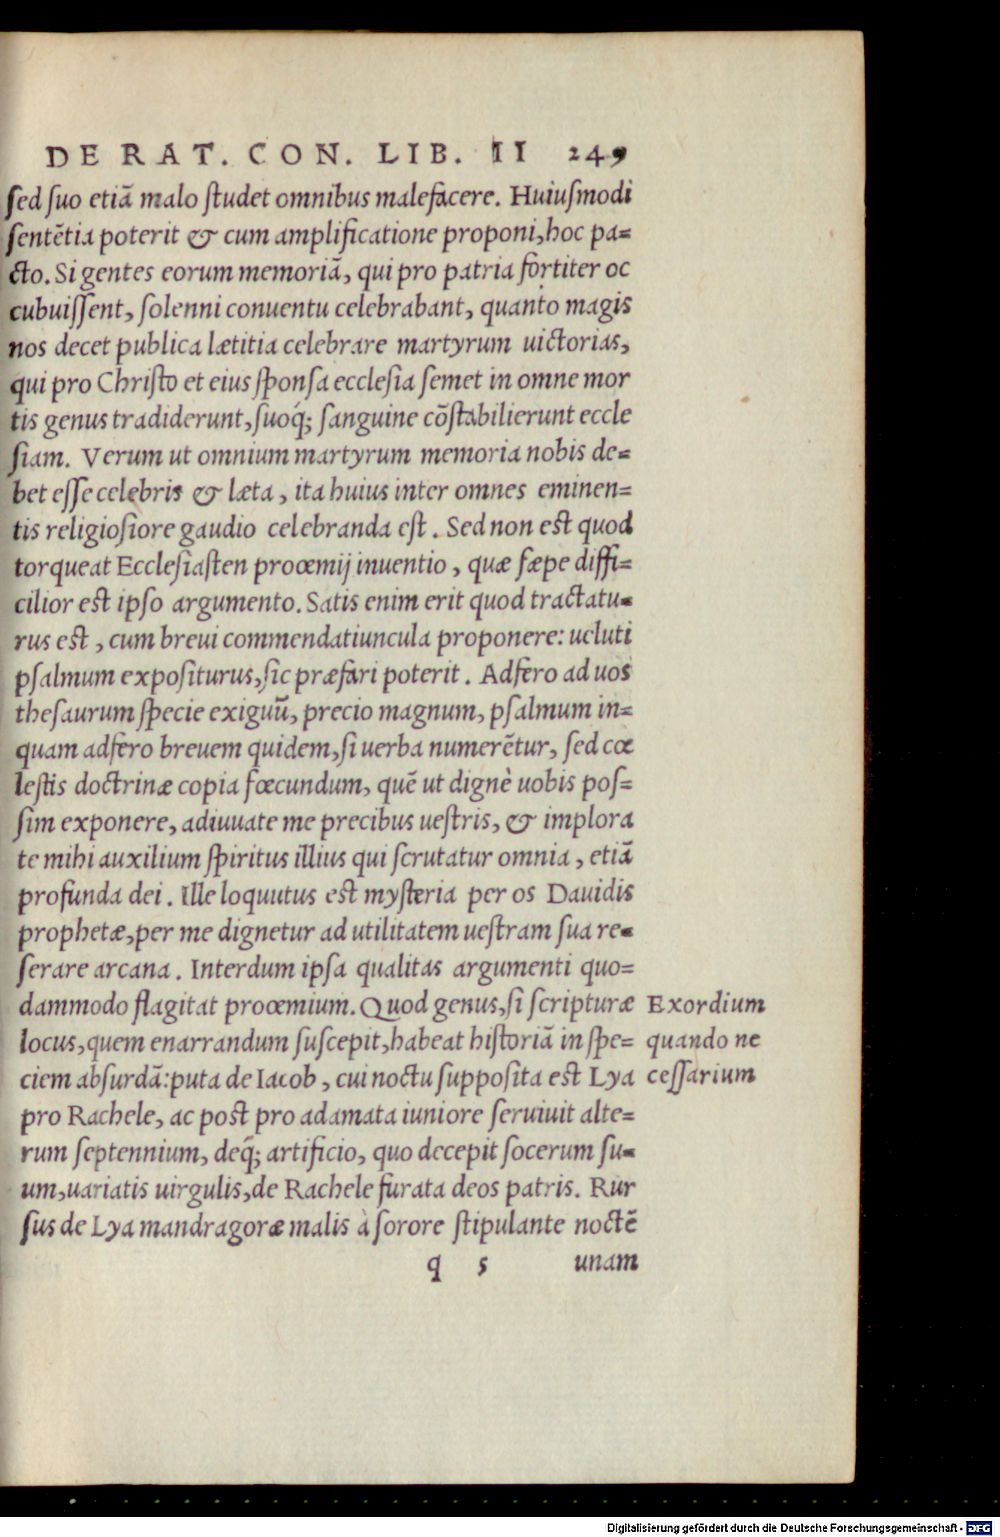 DE RAT. CON. LIB. II 249
sed suo etiā malo studet omnibus malefacere. Huiusmodi
sentētia poterit & cum amplificatione proponi, hoc pa=
cto. Si gentes eorum memoriā, qui pro patria fortiter oc
cubuissent, solenni conuentu celebrabant, quanto magis
nos decet publica lætitia celebrare martyrum uictorias,
qui pro Christo et eius sponsa ecclesia semet in omne mor
tis genus tradiderunt, suoq́; sanguine cōstabilierunt eccle
siam. Verum ut omnium martyrum memoria nobis de=
bet esse celebris & læta, ita huius inter omnes eminen=
tis religiosiore gaudio celebranda est. Sed non est quod
torqueat Ecclesiasten proœmij inuentio, quæ sæpe diffi=
cilior est ipso argumento. Satis enim erit quod tractatu=
rus est, cum breui commendatiuncula proponere: ueluti
psalmum expositurus, sic præfari poterit. Adfero ad uos
thesaurum specie exiguū, precio magnum, psalmum in=
quam adfero breuem quidem, si uerba numerētur, sed cœ
lestis doctrinæ copia fœcundum, quē ut dignè uobis pos=
sim exponere, adiuuate me precibus uestris, & implora
te mihi auxilium spiritus illius qui scrutatur omnia, etiā
profunda dei. Ille loquutus est mysteria per os Dauidis
prophetæ, per me dignetur ad utilitatem uestram sua re=
serare arcana. Interdum ipsa qualitas argumenti quo=
dammodo flagitat proœmium. Quod genus, si scripturæ
locus, quem enarrandum suscepit, habeat historiā in spe=
ciem absurdā: puta de Iacob, cui noctu supposita est Lya
pro Rachele, ac post pro adamata iuniore seruiuit alte=
rum septennium, deq̃; artificio, quo decepit socerum su=
um, uariatis uirgulis, de Rachele furata deos patris. Rur
sus de Lya mandragoræ malis à sorore stipulante noctē
q 5 unam
Exordium
quando ne
cessarium
Digitalisierung gefördert durch die Deutsche Forschungsgemeinschaft - DFG